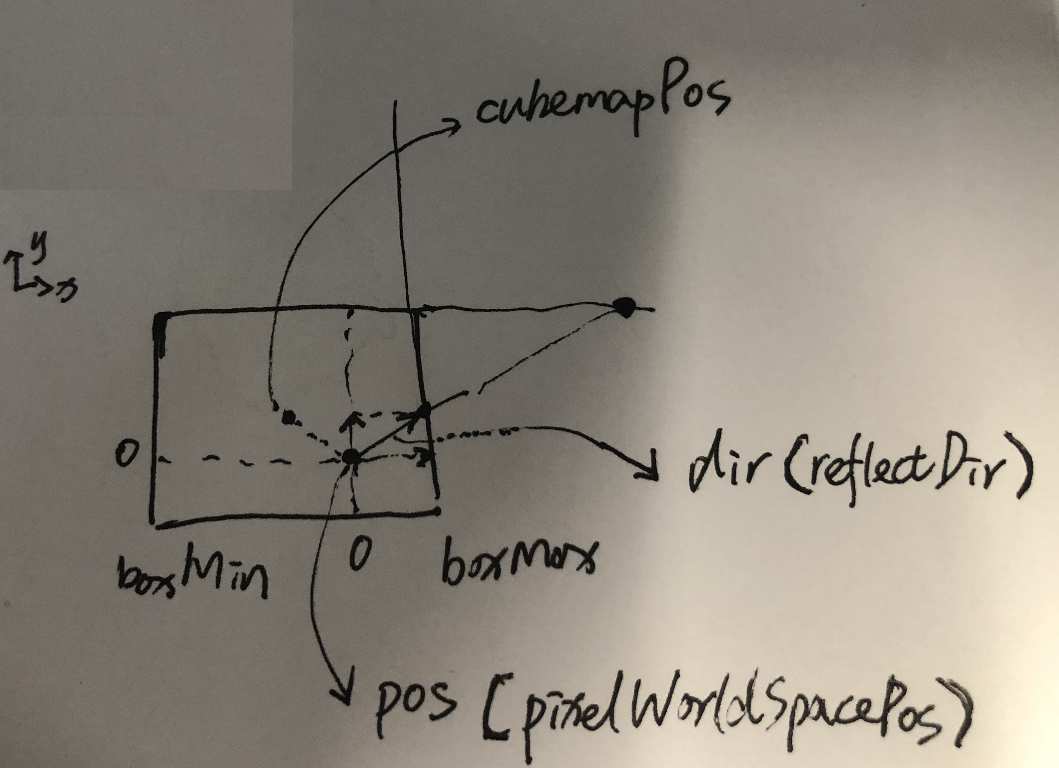 cubemapPos
y
x
0
dir (reflectDir)
boxMin
0
boxMax
pos (pixelWorldSpacePos)